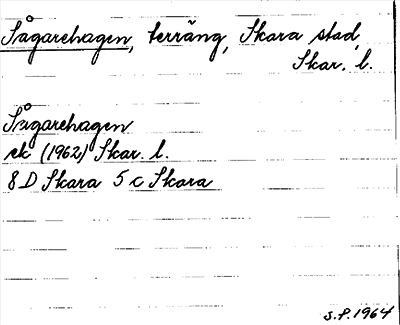 Sågarehagen, terräng, Skara stad,
Skar. l.
Sågarehagen
ek (1962) Skar. l.
8 D Skara 5 c Skara
S.P. 1964